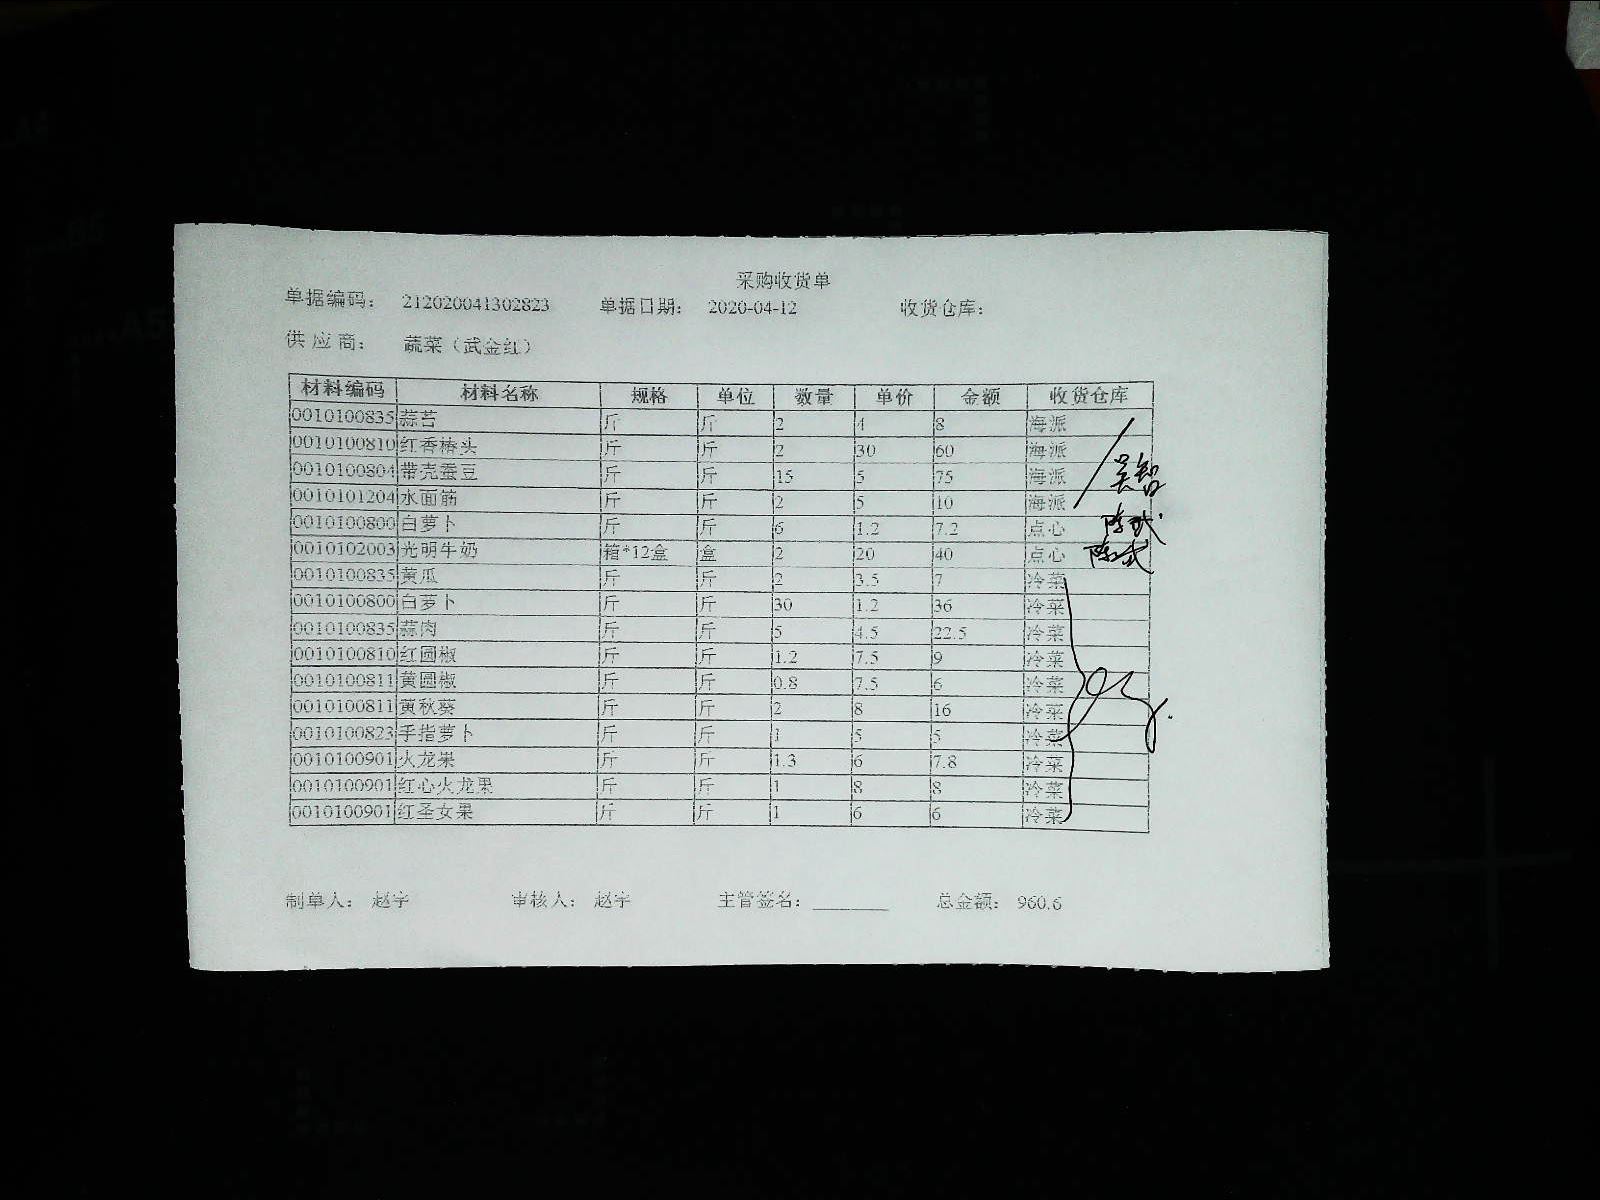 采购收货单
单据编码： 212020041302823 单据日期： 2020-04-12 收货仓库：
供应商： 蔬菜（武金红）
材料编码 材料名称 规格 单位 数量 单价 金额 收货仓库
0010100835 蒜苔 斤 斤 2 4 8 海派
0010100810 红香椿头 斤 斤 2 30 60 海派
0010100804 带壳蚕豆 斤 斤 15 5 75 海派
0010101204 水面筋 斤 斤 2 5 10 海派
0010100800 白萝卜 斤 斤 6 1.2 7.2 点心
0010102003 光明牛奶 箱*12盒 盒 2 20 40 点心
0010100835 黄瓜 斤 斤 2 3.5 7 冷菜
0010100800 白萝卜 斤 斤 30 1.2 36 冷菜
0010100835 蒜肉 斤 斤 5 4.5 22.5 冷菜
0010100810 红圆椒 斤 斤 1.2 7.5 9 冷菜
0010100811 黄圆椒 斤 斤 0.8 7.5 6 冷菜
0010100811 黄秋葵 斤 斤 2 8 16 冷菜
0010100823 手指萝卜 斤 斤 1 5 5 冷菜
0010100901 火龙果 斤 斤 1.3 6 7.8 冷菜
0010100901 红心火龙果 斤 斤 1 8 8 冷菜
0010100901 红圣女果 斤 斤 1 6 6 冷菜
制单人： 赵宇 审核人： 赵宇 主管签名： 总金额： 960.6